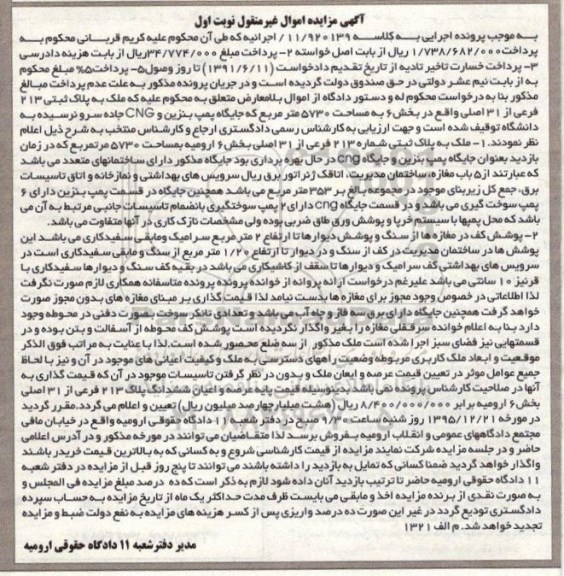 آگهی مزایده اموال غیرمنقول نوبت اول
به موجب پرونده اجرایی به کلاسه ۱۱/۹۲۰۱۳۹ اجرائیه که طی آن محکوم علیه کریم قربانی محکوم به
پرداخت ۱/۷۳۸/۶۸۲/۰۰۰ ریال از بابت اصل خواسته ۲- پرداخت مبلغ ۳۴/۷۷۴/۰۰۰ ریال از بابت هزینه دادرسی
۳- پرداخت خسارت تاخیر تادیه از تاریخ تقدیم دادخواست (۱۳۹۱/۶/۱۱) تا روز وصول ۵- پرداخت ۵% مبلغ محکوم
به از بابت نیم عشر دولتی در حق صندوق دولت گردیده است و در جریان پرونده مذکور به علت عدم پرداخت مبالغ
مذکور بنا به درخواست محکوم له و دستور دادگاه از اموال بلامعارض متعلق به محکوم علیه که ملک به پلاک ثبتی ۲۱۳
فرعی از ۳۱ اصلی واقع در بخش ۶ به مساحت ۵۷۳۰ متر مربع که جایگاه پمپ بنزین و CNG جاده سرو نرسیده به
دانشگاه توقیف شده است و جهت ارزیابی به کارشناس رسمی دادگستری ارجاع و کارشناس منتخب به شرح ذیل اعلام
نظر نمودند. ۱- ملک به پلاک ثبتی شماره ۲۱۳ فرعی از ۳۱ اصلی بخش ۶ ارومیه بمساحت ۵۷۳۰ مترمربع که در زمان
بازدید بعنوان جایگاه پمپ بنزین و جایگاه cng در حال بهره برداری بود جایگاه مذکور دارای ساختمانهای متعدد می باشد
که عبارتند از ۵ باب مغازه، ساختمان مدیریت، اتاقک ژنراتور برق ریال سرویس های بهداشتی و نمازخانه و اتاق تاسیسات
برق، جمع کل زیربنای موجود در مجموعه بالغ بر ۳۵۳ متر مربع می باشد همچنین جایگاه در قسمت پمپ بنزین دارای ۶
پمپ سوخت گیری می باشد و در قسمت جایگاه cng دارای ۲ پمپ سوختگیری بانضمام تاسیسات جانبی مرتبط به آن می
باشد که محل پمپها با سیستم خرپا و پوشش ورق طاق ضربی بوده ولی مشخصات نازک کاری در آنها متفاوت می باشد.
۲- پوشش کف در مغازه ها از سنگ و پوشش دیوارها تا ارتفاع ۲ متر مربع سرامیک ومابقی سفیدکاری می باشد این
پوشش ها در ساختمان مدیریت در کف از سنگ و در دیوار تا ارتفاع ۱/۲۰ متر مربع از سنگ و مابقی سفیدکاری است در
سرویس های بهداشتی کف سرامیک و دیوارها تا سقف از کاشیکاری می باشد در بقیه کف سنگ و دیوارها سفیدکاری با
قرنیز ۱۰ سانتی می باشد علیرغم درخواست ارائه پروانه از خوانده پرونده پرونده متاسفانه همکاری لازم صورت نگرفت
لذا اطلاعاتی در خصوص وجود مجوز برای مغازه ها بدست نیامد لذا قیمت گذاری بر مبنای مغازه های بدون مجوز صورت
خواهد گرفت همچنین جایگاه دارای برق سه فاز و چاه آب می باشد و تعدادی تانکر سوخت بصورت دفنی در محوطه وجود
دارد بنا به اعلام خوانده سرقفلی مغازه را بغیر واگذار نگردیده است پوشش کف محوطه از آسفالت و بتن بوده و در
قسمتهایی نیز فضای سبز اجرا شده است ملک مذکور از سه ضلع محصور شده است. لذا با عنایت به مراتب فوق الذکر
موقعیت و ابعاد ملک کاربری مربوطه وضعیت راههای دسترسی به ملک و کیفیت اعیانی های موجود در آن و نیز با لحاظ
جمیع عوامل موثر در تعیین قیمت عرصه و اعیان ملک و بدون در نظر گرفتن تاسیسات موجود در آن که قیمت گذاری به
آنها در صلاحیت کارشناس پرونده نمی باشد بدینوسیله قیمت پایه عرصه و اعیان ششدانگ پلاک ۲۱۳ فرعی از ۳۱ اصلی
بخش ۶ ارومیه برابر ۸/۴۰۰/۰۰۰/۰۰۰ ریال (هشت میلیارد چهارصد میلیون ریال) تعیین و اعلام می گردد. مقرر گردید
در مورخه ۱۳۹۵/۱۲/۲۱ روز شنبه ساعت ۹/۳۰ صبح در دفتر شعبه ۱۱ دادگاه حقوقی ارومیه واقع در خیابان مافی
مجتمع دادگاههای عمومی و انقلاب ارومیه بفروش برسد لذا متقاضیان می توانند در مورخه مذکور و در آدرس اعلامی
حاضر و در جلسه مزایده شرکت نمایند مزایده از قیمت کارشناسی شروع و به کسانی که به بالاترین قیمت خریدار باشند
واگذار خواهد گردید ضمنا کسانی که تمایل به بازدید را داشته باشند می توانند تا پنج روز قبل از مزایده در دفتر شعبه
۱۱ دادگاه حقوقی ارومیه حاضر تا ترتیب بازدید آنان داده شود لازم به ذکر است که ده درصد مبلغ مزایده فی المجلس و
به صورت نقدی از برنده مزایده اخذ و مابقی می بایست ظرف مدت حداکثر یک ماه از تاریخ مزایده به حساب سپرده
دادگستری تودیع گردد در غیر این صورت ده درصد واریزی پس از کسر هزینه های مزایده به نفع دولت ضبط و مزایده
تجدید خواهد شد. م الف ۱۳۲۱
مدیر دفتر شعبه ۱۱ دادگاه حقوقی ارومیه